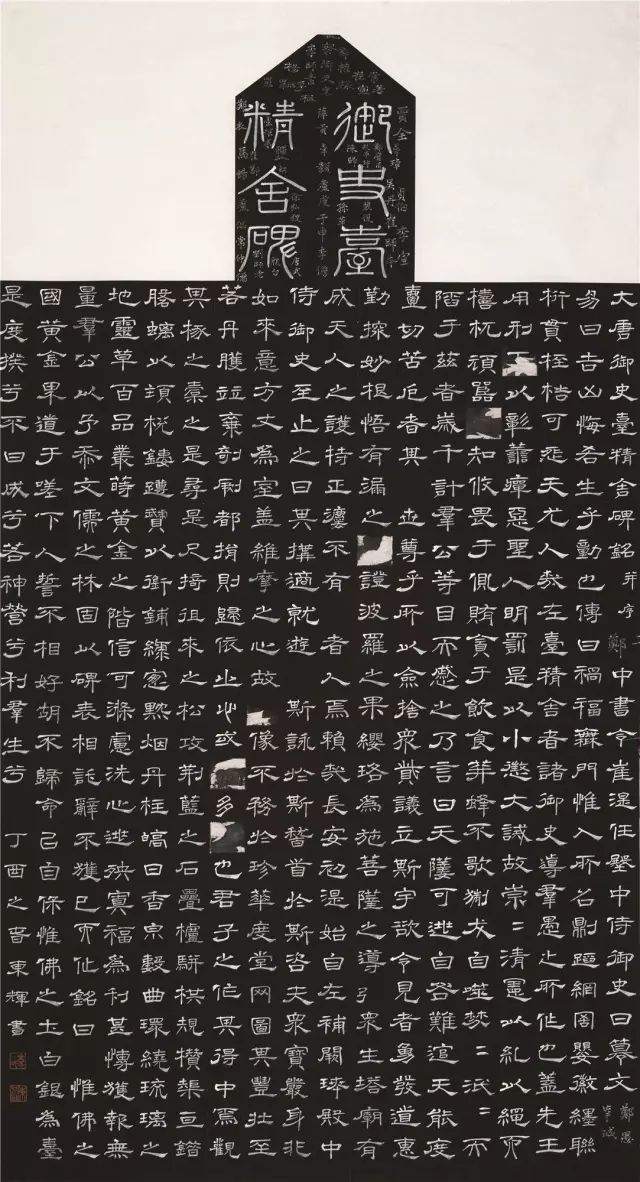 御史臺
精舍碑
大唐御史臺精舍碑銘并序 中書令崔湜任殿中侍御史日纂文
易曰吉凶悔吝生乎動也傳曰禍福無門惟人所召則踁網罟嬰徽纆聯
桁貫桎梏可怨天尤人哉左臺精舍者諸御史導羣愚之所作也蓋先王
用刑以彰善癉惡聖人明罰是以小懲大誡故崇=清憲以紀以繩而
檮杌頑嚚知攸畏于賄貪于飲食莽蜂不歌猘犬自噬焚=泯=而
陷于茲者歲千計羣公等目而感之乃言曰天孽可逃自咎難逭夫能度
壹切苦厄者其 世尊乎所以僉捨衆貲議立斯宇欲令見者勇發道惠
勤探妙根悟有漏之證波羅之果纓珞為施菩薩之導引衆生塔廟有
成天人之護持正瀍不有 者人焉賴哉長安初湜始自左補闕殿中
侍御史至止之日其搆適就遊 斯詠於斯稽首於斯咨夫衆寶叢身北
如來意方丈為室蓋維摩之心故像不務於珍華度堂罔圖其豐壯至
若丹雘並棄剞劂都捐則歸依之心或多也君子之作其得中焉觀
其椓之橐之是尋是尺掎徂來之松攻荊藍之石疊櫨駢栱規攢亘錯
騰螭以頊梲鏤蹲獸以銜鋪綵窻黕烟丹柱皜日香泉數曲環繞琉璃之
地靈草百品叢蒔黃金之階信可滌慮洗心逃殃寘福為利甚慱獲報無
量羣公以予忝文儒之林固以碑表相託辭不獲已而作銘曰 惟佛之
國黃金界道于嗟下人誓不相好胡不歸命己自保惟佛之土白銀為臺
是度樸兮不日成兮若神營兮利羣生兮 丁酉之春東輝書